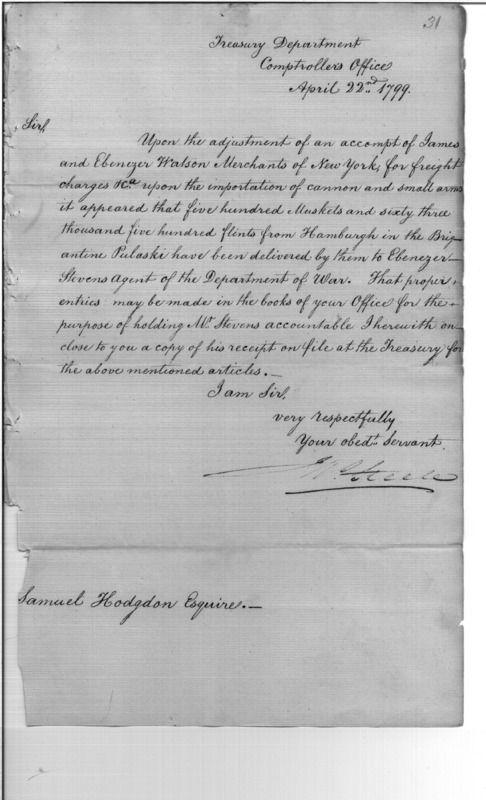 31
Treasury Department
Comptroller's Office
April 22nd 1799.
Sir,
Upon the adjustment of an accompt of James
and Ebenezer Watson Merchants of New York, for freight
charges &ca upon the importation of cannon and small arms
it appeared that five hundred Muskets and sixty three
thousand five hundred flints from Hamburgh in the Brig-
antine Pulaski have been delivered by them to Ebenezer
Stevens Agent of the Department of War. That proper
entries may be made in the books of your Office for the
purpose of holding Mr Stevens accountable I herewith en-
close to you a copy of his receipt on file at the Treasury for
the above mentioned articles.—
I am Sir,
very respectfully
Your obedt. Servant.
Jno Steele
Samuel Hodgdon Esquire.—